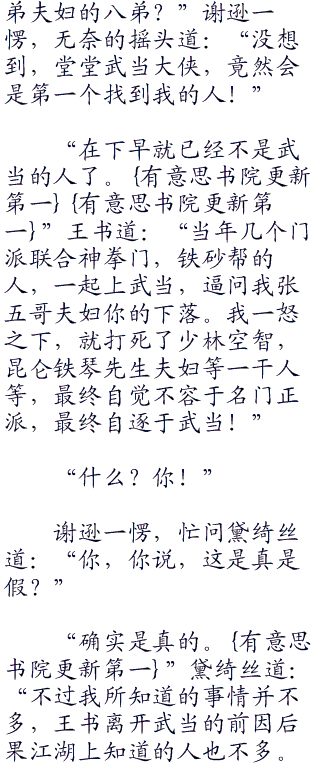 弟夫妇的八弟？”谢逊一
愣，无奈的摇头道：“没想
到，堂堂武当大侠，竟然会
是第一个找到我的人！”
“在下早就已经不是武
当的人了。{有意思书院更新
第一}{有意思书院更新第
一}”王书道：“当年几个门
派联合神拳门，铁砂帮的
人，一起上武当，逼问我张
五哥夫妇你的下落。我一怒
之下，就打死了少林空智，
昆仑铁琴先生夫妇等一干人
等，最终自觉不容于名门正
派，最终自逐于武当！”
“什么？你！”
谢逊一愣，忙问黛绮丝
道：“你，你说，这是真是
假？”
“确实是真的。{有意思
书院更新第一}”黛绮丝道：
“不过我所知道的事情并不
多，王书离开武当的前因后
果江湖上知道的人也不多。